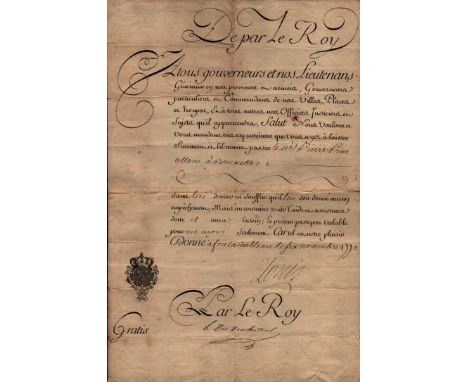 De par Le Roy
A tous gouverneurs et nos Lieutenans
Generaux en nos provinces et armées, Gouverneurs
particuliers et Commandans de nos Villes, Places
et troupes, Et a tous autres nos Officiers Justiciers et
Sujets qu'il appartiendra, Salut Nous Voulons et
Vous mandons tres expressement que vous ayez à laisser
Seurement et librement passer le
allant à Bruxelles
Sans donner ni Souffrir qu'il donné aucun
empêchement, Mais au contraire toute l'aide et assistance
dont il aura besoin; Le present passeport valable
pour mois Seulement Car tel est notre plaisir
Donné a fontainebleau le novembre
Louis
Par Le Roy
Gratis